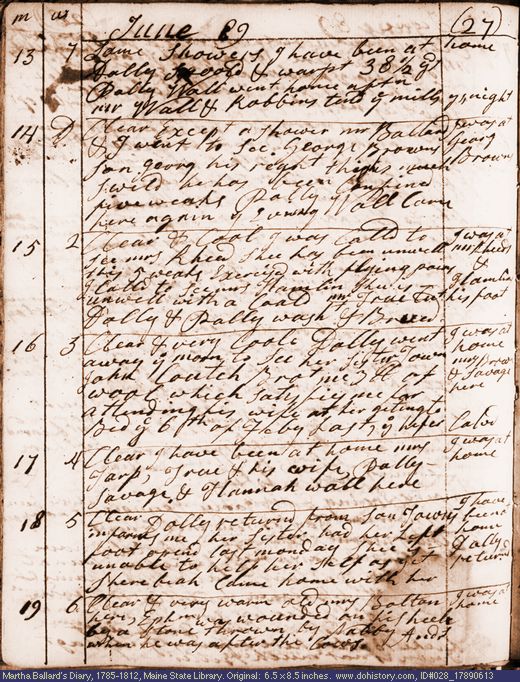 m w June 89 (27)
13 7 Some showers I have been at home
Dolly & warpt 38 1/2 yds
Polly Wall went home after
mr Wall & Robbins tend ye mills ys night
14 D Clear Except a shower mr Ballard I was at
& I went to See George Browns Georg
Son georg his right thigh Browns
Sweld he has been Confind
five weaks Polly Wall Came
here again ys Evning
15 2 Clear & Cool I was Calld to I was at
See mrs Kheed Shee has been unwell mrs Kheeds
this 5 weaks Exercisd with flying pains &
I Calld to See mrs Hamlin shee is Hamlin
unwell with a Cold mr True Cut his foot
Dolly & Polly wash & Brued
16 3 Clear & very Coole Dolly went I was at
away ys morn to See her Sister Town home
John Coutch Brot me 3 lb of mrs Brown
wool which Satisfies me for & Savage
attending his wife at her geting to here
Bed ye 6th of Feby last,
17 4 Clear I have been at home mrs I was at
True & his wife Polly home
Savage & Hannah wall here
18 5 Clear Dolly returnd from Son Towns I have
informs me her Sister had her left been at
foot opend last monday Shee is home
unable to help her Self as yet Dolly
Sphere hah Came home with her returnd
19 6 Clear & very warm mrs Bolton I was at
here, Ephm was wounded on his heele home
by a stone thrown by
when he was after the Cows
Martha Ballard's Diary, 1785-1812, Maine State Library. Original: 6.5 x 8.5 inches. www.dohistory.com, ID#028_17890613